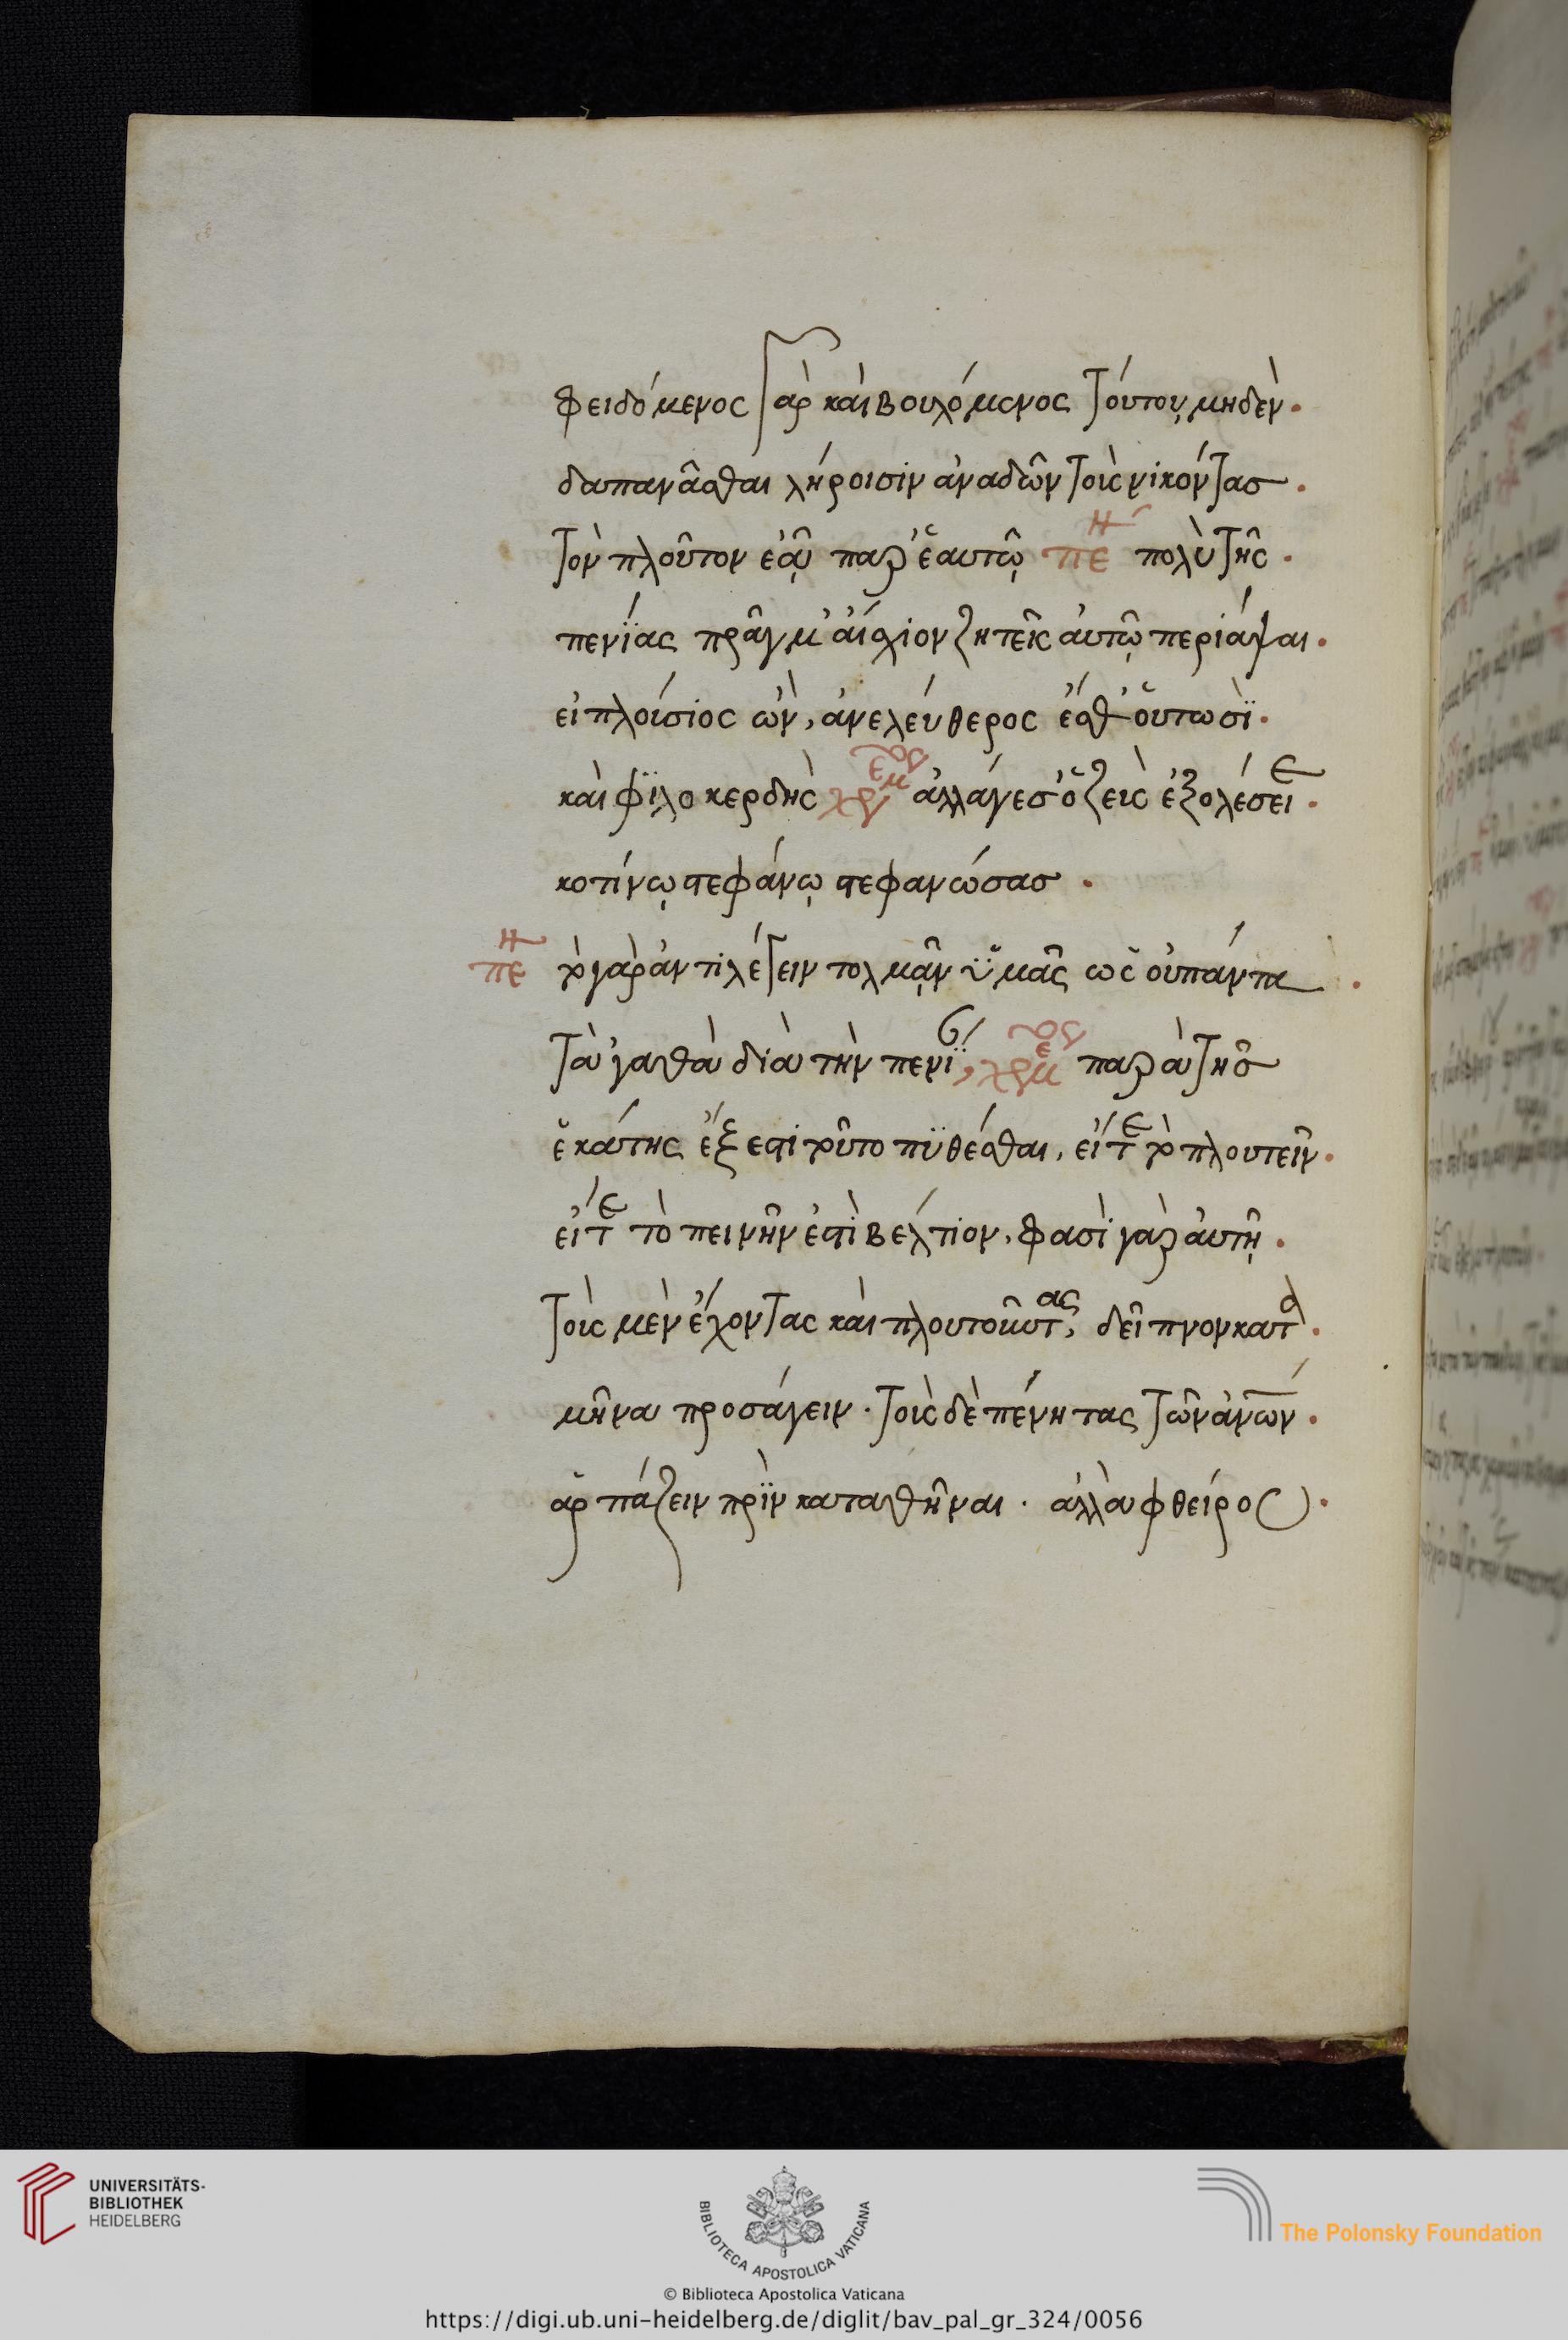 φειδόμενος γὰρ καὶ βουλόμενος τούτου μηδὲν.
δαπανᾶσθαι λήροισιν ἀναδῶν τοὺς νικόντας.
τὸν πλοῦτον ἐᾷ παρ' ἑαυτῷ πε^η πολὺ τῆς.
πενίας πρᾶγμ' αἴσχιον ζητεῖς αὐτῷ περιάψαι.
εἰ πλούσιος ὢν, ἀνελεύθερος ἔσθ' οὑτωσῒ.
καὶ φϊλοκερδὴς χρεμ ἀλλά γε σ' ὁ ζεὺς ἐξολέσειε.
κοτίνῳ στεφάνῳ στεφανώσασ.
πε^η τὸ γὰρ ἀντιλέγειν τολμᾷν ὑμᾶς ὡς οὐ πάντα.
τἀγαθὰ διὰ τὴν πενΐ, χρεμ παρὰ τῆσ
ἑκάτης ἔξεστι τοῦτο πϋθέσθαι, εἴτε τὸ πλουτεῖν.
εἴτε τὸ πεινῆν ἐστὶ βέλτιον, φασῒ γὰρ αὐτῇ.
τοὺς μὲν ἔχοντας καὶ πλουτοῦντας, δεῖπνον κατὰ.
μῆνα προσάγειν. τοὺς δὲ πένητας τῶν ἀνων.
ἁρπάζειν πρῒν καταθῆναι. ἀλλὰ φθείρου.
UNIVERSITÄTS-
BIBLIOTHEK
HEIDELBERG
BIBLIOTECA APOSTOLICA VATICANA
The Polonsky Foundation
© Biblioteca Apostolica Vaticana
https://digi.ub.uni-heidelberg.de/diglit/bav_pal_gr_324/0056